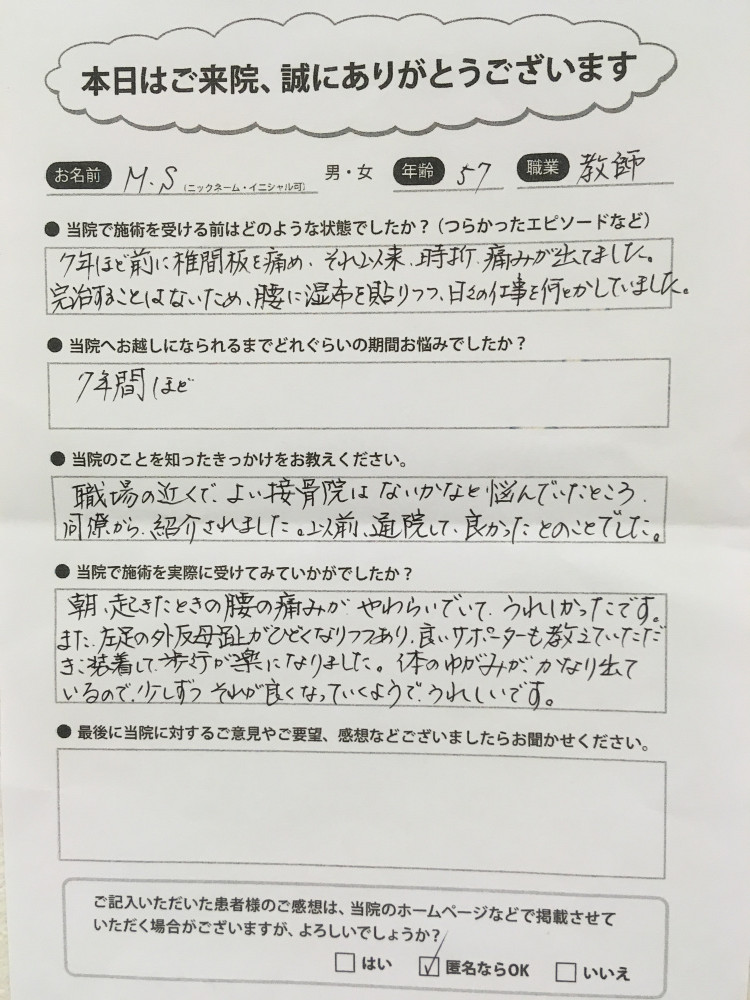 本日はご来院、誠にありがとうございます
お名前 M.S (ニックネーム・イニシャル可) 男・女 年齢 57 職業 教師
● 当院で施術を受ける前はどのような状態でしたか？(つらかったエピソードなど)
7年ほど前に椎間板を痛め、それ以来、時折、痛みが出てました。
完治することはないため、腰に湿布を貼りつつ、日々の仕事を何とかしていました。
● 当院へお越しになられるまでどれぐらいの期間お悩みでしたか？
7年間ほど
● 当院のことを知ったきっかけをお教えください。
職場の近くで、よい接骨院はないかなと悩んでいたところ、
同僚から、紹介されました。以前、通院して、良かったとのことでした。
● 当院で施術を実際に受けてみていかがでしたか？
朝、起きたときの腰の痛みが、やわらいでいて、うれしかったです。
また、左足の外反母趾がひどくなりつつあり、良いサポーターも教えていただ
き、装着して、歩行が楽になりました。体のゆがみが、かなり出て
いるので、少しずつそれが良くなっていくようで、うれしいです。
● 最後に当院に対するご意見やご要望、感想などございましたらお聞かせください。
ご記入いただいた患者様のご感想は、当院のホームページなどで掲載させて
いただく場合がございますが、よろしいでしょうか？
□ はい ☑ 匿名ならOK □ いいえ